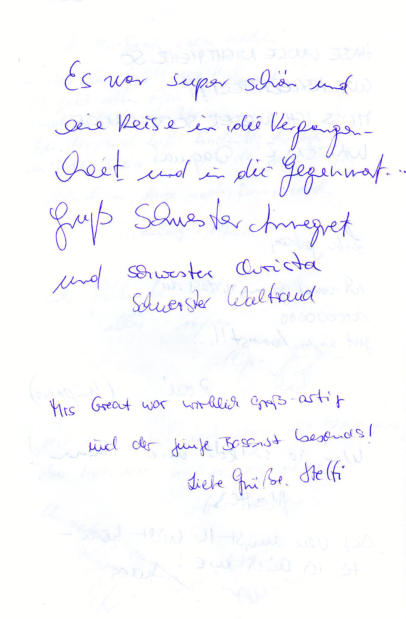 Es war super schön und
eine Reise in die Vergangen-
heit und in die Gegenwart...
Gruß Schwester Annegret
und Schwester Christa
Schwester Waltraud
Mrs Great war wirklich groß-artig
und der junge Bassist besonders!
Liebe Grüße. Steffi